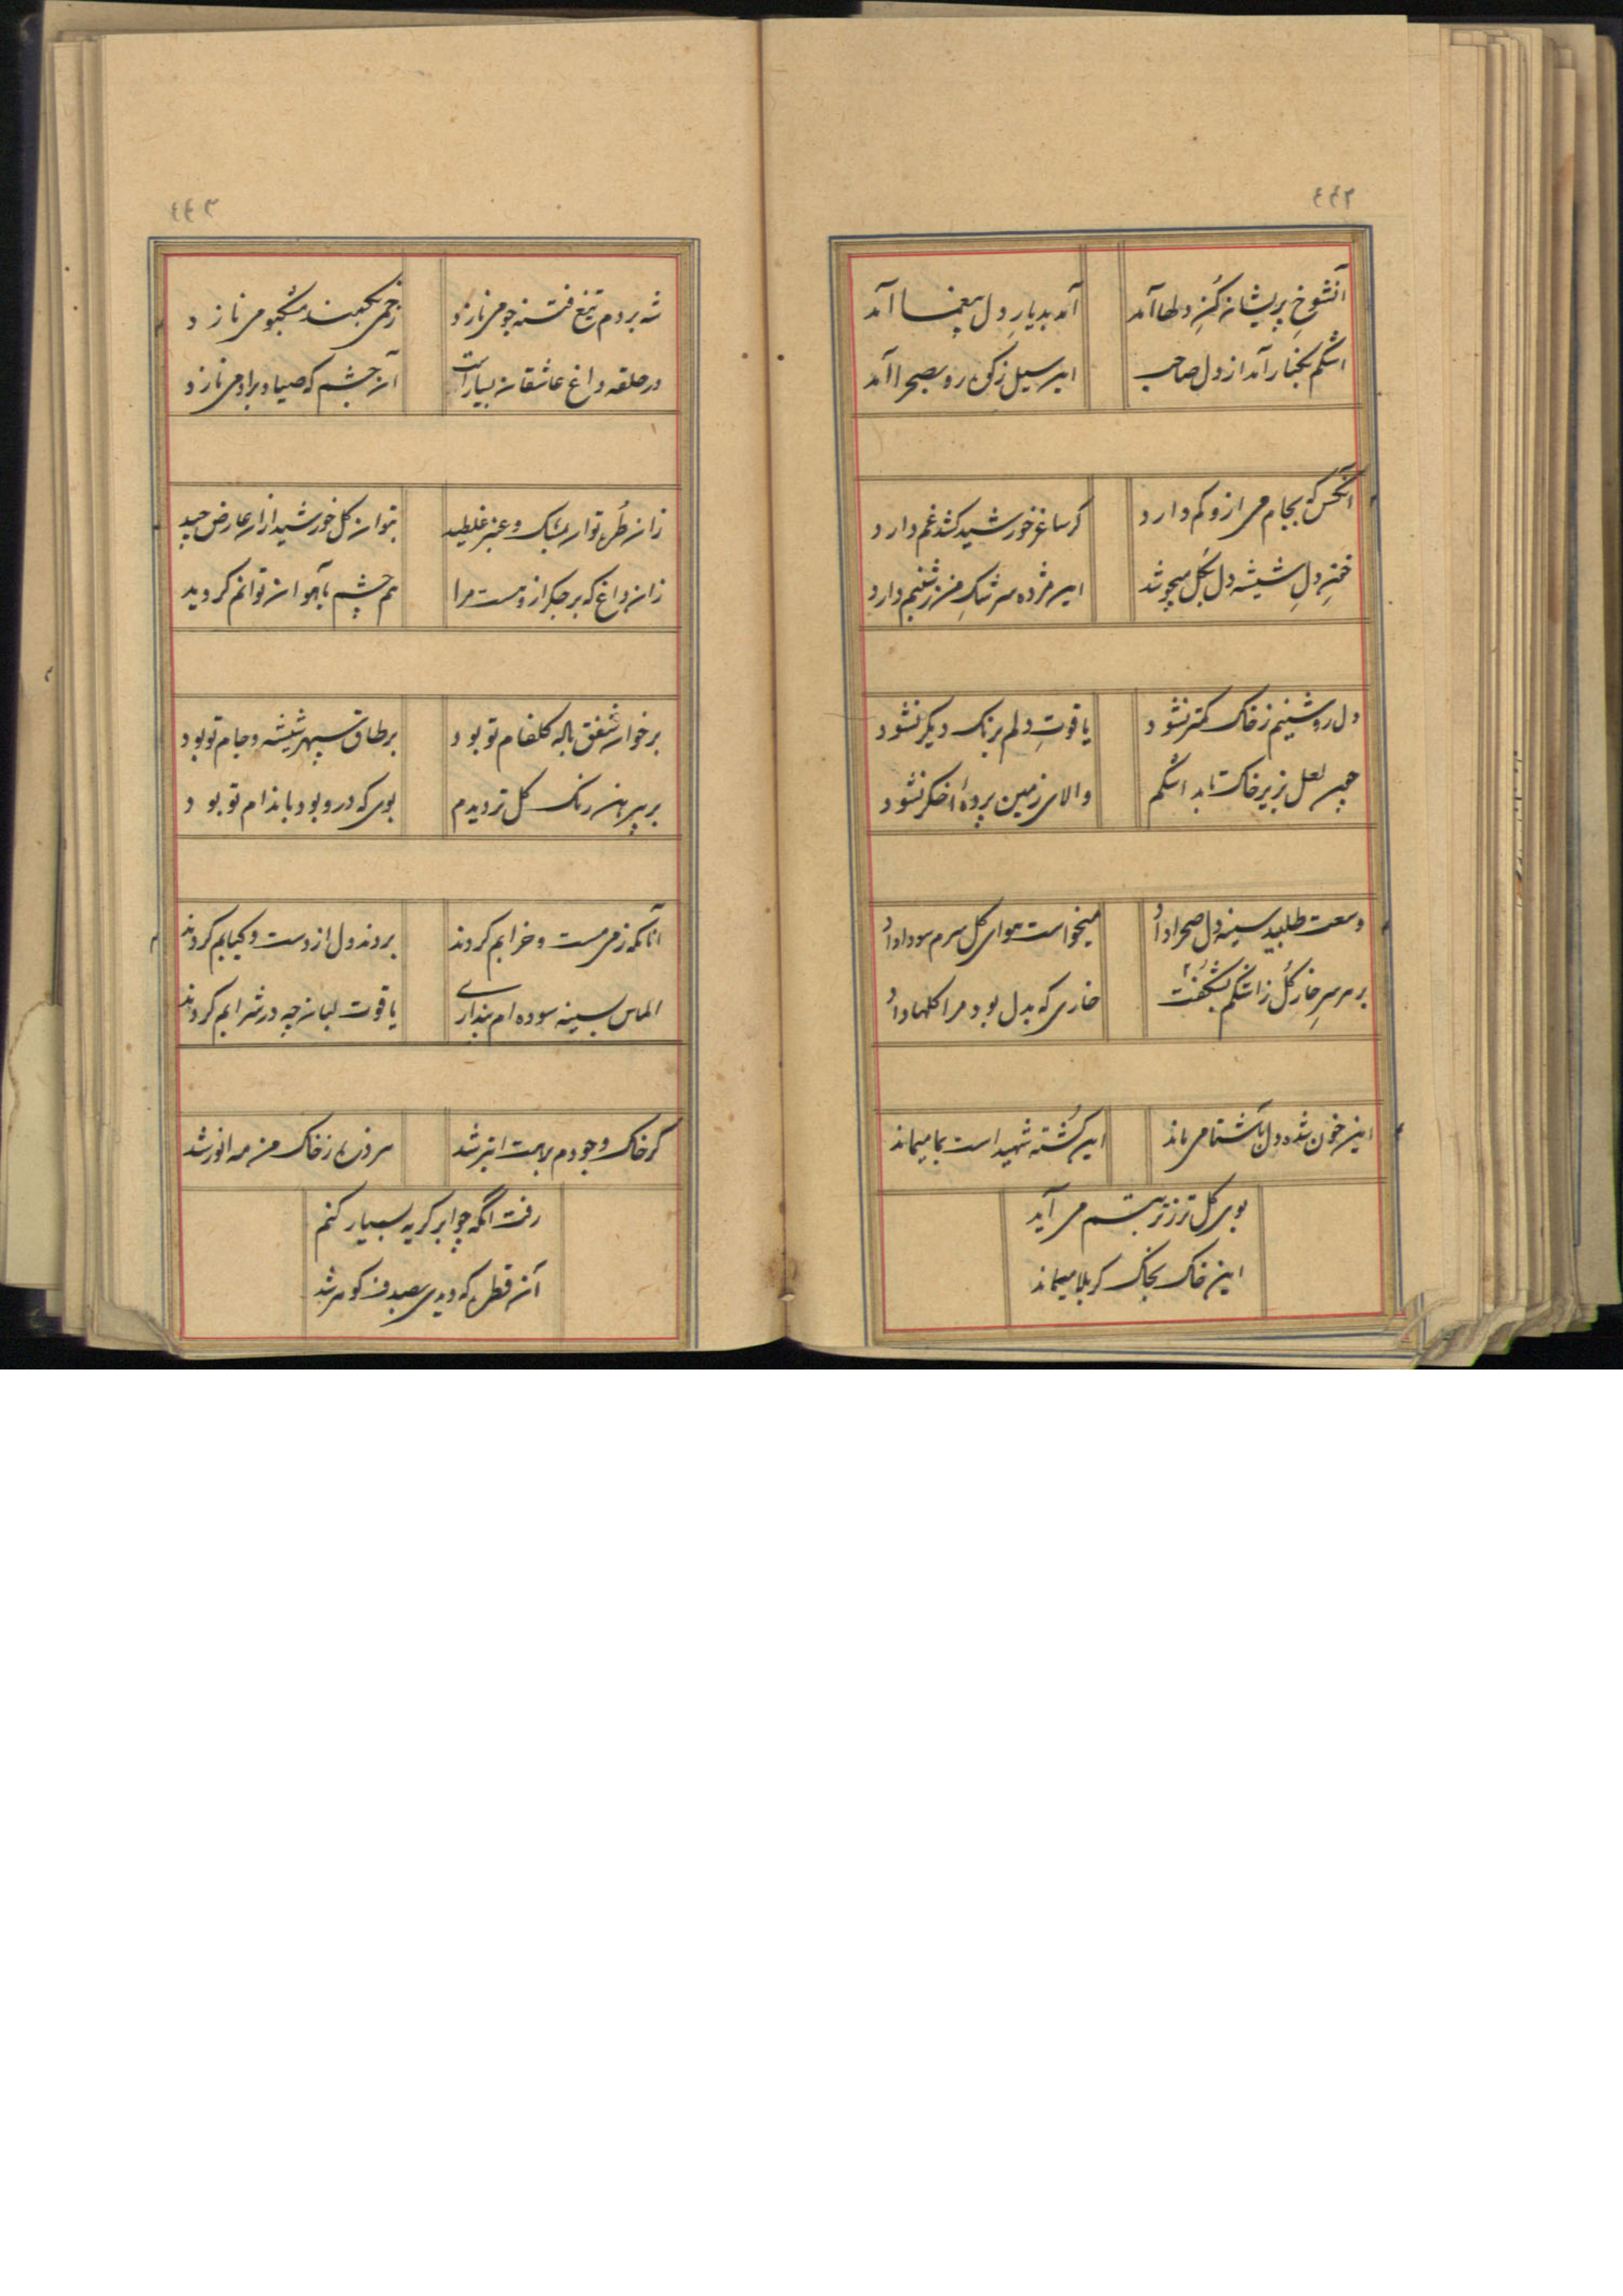 ٤٤٢
آنشوخ پریشان کُنِ دلها آمد
آمد بدیارِ دل بیغما آمد
اشکم بکنار آمد از دل صاحب
این سیل ز کوه رو بصحرا آمد
آنکس که بجام می ازو کم دارد
کر ساغر خورشید کشد غم دارد
خونِ دلِ شیشه دل بکل میجوشد
این مژده سرشکِ من ز شبنم دارد
دل روشنیم ز خاک کمتر نشود
یاقوتِ دلم برنک دیکر نشود
چون لعل بزیر خاک تابد اشکم
والای زمین پردهٔ اخکر نشود
وسعت طلبید سینه دل صحرا داد
میخواست هوای کل سرم سودا داد
بر هر سرِ خار کُل ز اشکم بشکُفت
خاری که بدل بود مرا کلها داد
این خون شده دل بآشنا می ماند
این کُشته شهید است بما میماند
بوی کل تر ز تربتم می آید
این خاک بخاک کربلا میماند
٤٤٣
شه بر دم تیغ فتنه جو می نازد
زخمی بکمند مشکبو می نازد
در حلقه داغ عاشقان بسیار است
آن چشم که صیاد براو می نازد
زان طُره توان بمشک و عنبر غلطید
بتوان کل خورشید ازان عارض چید
زان داغ که بر جکر ازو هست مرا
هم چشم بآهوان توانم کردید
بر خوان شفق باله کلفام تو بود
بر طاق سپهر شیشه و جام تو بود
بر پیرهن رنک کل تر دیدم
بوی که درو بود باندام تو بود
آنانکه ز می مست و خرابم کردند
بردند دل از دست و کبابم کردند
الماس بسینه سوده ام پنداری
یاقوت لبان چه در شرابم کردند
کر خاک وجودم بر همت ابتر شد
هر ذره ز خاک من مه انور شد
رفت آنکه چو ابر کریه بسیار کنم
آن قطره که دیدی بصدف کوهر شد